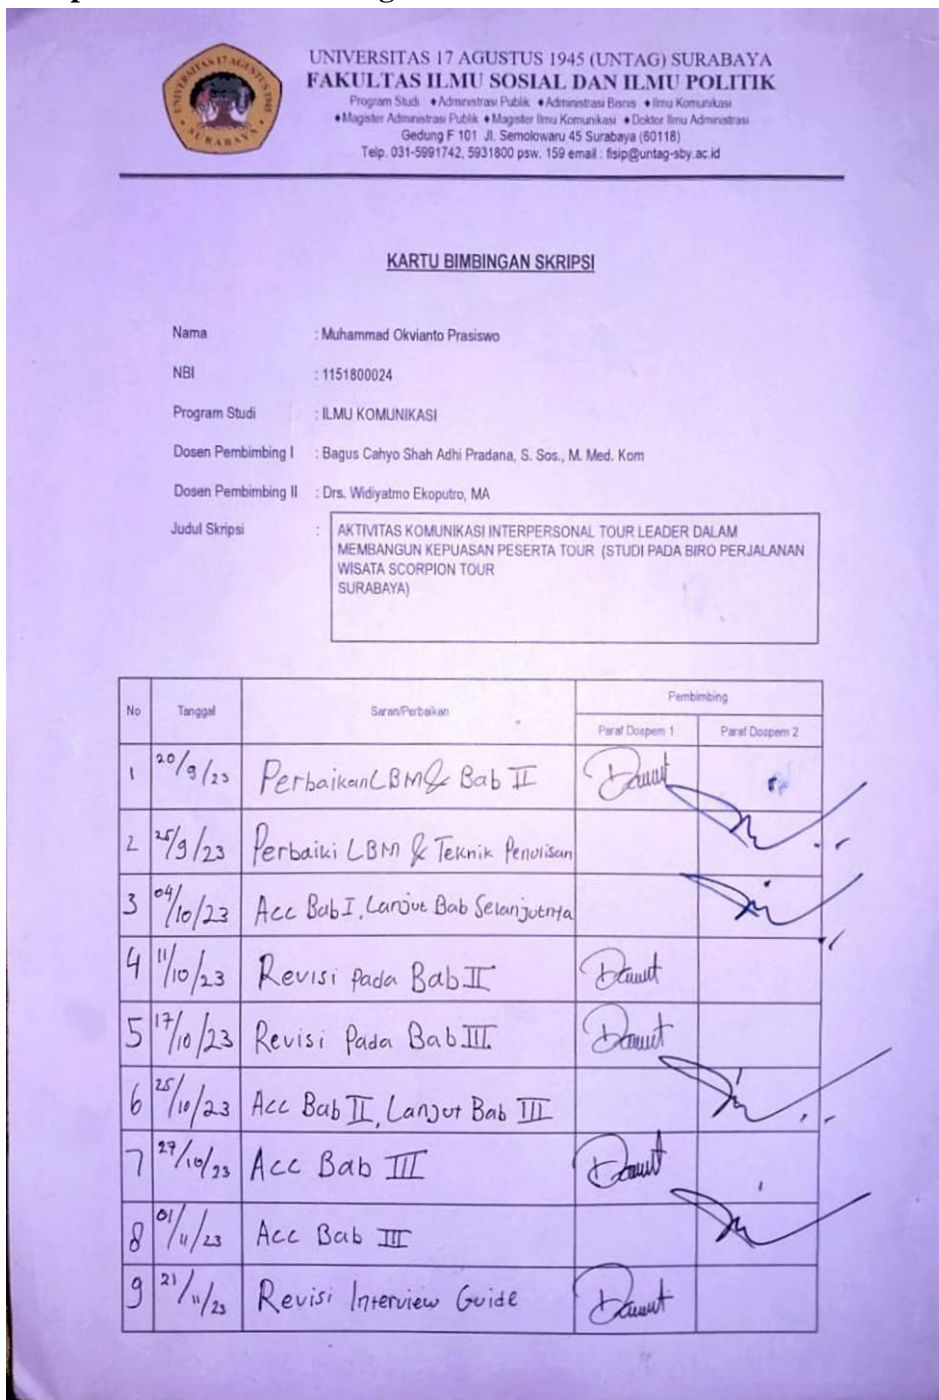 UNIVERSITAS 17 AGUSTUS 1945
SURABAYA
UNIVERSITAS 17 AGUSTUS 1945 (UNTAG) SURABAYA
FAKULTAS ILMU SOSIAL DAN ILMU POLITIK
Program Studi ♦Administrasi Publik ♦Administrasi Bisnis ♦Ilmu Komunikasi
♦Magister Administrasi Publik ♦Magister Ilmu Komunikasi ♦Doktor Ilmu Administrasi
Gedung F 101 Jl. Semolowaru 45 Surabaya (60118)
Telp. 031-5991742, 5931800 psw. 159 email : fisip@untag-sby.ac.id
KARTU BIMBINGAN SKRIPSI
Nama : Muhammad Okvianto Prasiswo
NBI : 1151800024
Program Studi : ILMU KOMUNIKASI
Dosen Pembimbing I : Bagus Cahyo Shah Adhi Pradana, S. Sos., M. Med. Kom
Dosen Pembimbing II : Drs. Widiyatmo Ekoputro, MA
Judul Skripsi : AKTIVITAS KOMUNIKASI INTERPERSONAL TOUR LEADER DALAM
MEMBANGUN KEPUASAN PESERTA TOUR (STUDI PADA BIRO PERJALANAN
WISATA SCORPION TOUR
SURABAYA)
No Tanggal Saran/Perbaikan Pembimbing
Paraf Dospem 1 Paraf Dospem 2
1 20/9/23 Perbaikan LBM & Bab II
2 25/9/23 Perbaiki LBM & Teknik Penulisan
3 04/10/23 Acc Bab I, Lanjut Bab Selanjutnya
4 11/10/23 Revisi Pada Bab II
5 17/10/23 Revisi Pada Bab III
6 25/10/23 Acc Bab II, Lanjut Bab III
7 27/10/23 Acc Bab III
8 01/11/23 Acc Bab III
9 21/11/23 Revisi Interview Guide